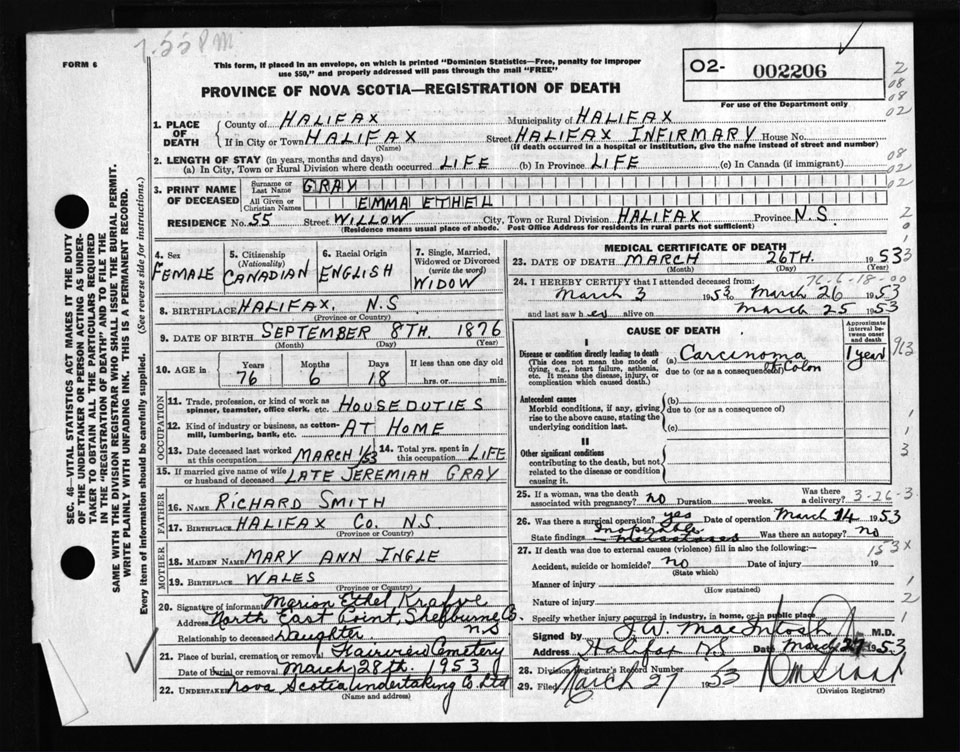 7.55 PM
FORM 6
This form, if placed in an envelope, on which is printed "Dominion Statistics—Free, penalty for improper
use $50," and properly addressed will pass through the mail "FREE"
O2- 002206
For use of the Department only
PROVINCE OF NOVA SCOTIA—REGISTRATION OF DEATH
SEC. 46—VITAL STATISTICS ACT MAKES IT THE DUTY
OF THE UNDERTAKER OR PERSON ACTING AS UNDER-
TAKER TO OBTAIN ALL THE PARTICULARS REQUIRED
IN THE "REGISTRATION OF DEATH" AND TO FILE THE
SAME WITH THE DIVISION REGISTRAR WHO SHALL ISSUE THE BURIAL PERMIT.
WRITE PLAINLY WITH UNFADING INK. THIS IS A PERMANENT RECORD.
Every item of information should be carefully supplied. (See reverse side for instructions.)
1. PLACE OF DEATH County of HALIFAX Municipality of HALIFAX
If in City or Town HALIFAX Street HALIFAX INFIRMARY House No.
(Name) (If death occurred in a hospital or institution, give the name instead of street and number)
2. LENGTH OF STAY (in years, months and days)
(a) In City, Town or Rural Division where death occurred LIFE (b) In Province LIFE (c) In Canada (if immigrant)
3. PRINT NAME OF DECEASED Surname or Last Name GRAY
All Given or Christian Names EMMA ETHEL
RESIDENCE No. 55 Street WILLOW City, Town or Rural Division HALIFAX Province N.S
(Residence means usual place of abode. Post Office Address for residents in rural parts not sufficient)
4. Sex FEMALE
5. Citizenship (Nationality) CANADIAN
6. Racial Origin ENGLISH
7. Single, Married, Widowed or Divorced (write the word) WIDOW
8. BIRTHPLACE HALIFAX, N.S
(Province or Country)
9. DATE OF BIRTH SEPTEMBER 8TH. 1876
(Month) (Day) (Year)
10. AGE IN Years 76 Months 6 Days 18 If less than one day old hrs. or min.
OCCUPATION
11. Trade, profession, or kind of work as spinner, teamster, office clerk, etc. HOUSE DUTIES
12. Kind of industry or business, as cotton-mill, lumbering, bank, etc. AT HOME
13. Date deceased last worked at this occupation MARCH 1/53 14. Total yrs. spent in this occupation LIFE
15. If married give name of wife or husband of deceased LATE JEREMIAH GRAY
FATHER
16. NAME RICHARD SMITH
17. BIRTHPLACE HALIFAX CO. N.S.
(Province or Country)
MOTHER
18. MAIDEN NAME MARY ANN INGLE
19. BIRTHPLACE WALES
(Province or Country)
20. Signature of informant Marion Ethel
Address North East Point, Shelburne Co. N S
Relationship to deceased Daughter.
21. Place of burial, cremation or removal Fairview Cemetery
Date of burial or removal March 28th. 1953
22. UNDERTAKER Nova Scotia Undertaking Co. Ltd
(Name and address)
MEDICAL CERTIFICATE OF DEATH
23. DATE OF DEATH MARCH 26TH. 1953
(Month) (Day) (Year)
24. I HEREBY CERTIFY that I attended deceased from: 76-6-18-00
March 3 1953 to March 26 1953
and last saw her alive on March 25 1953
CAUSE OF DEATH
Approximate interval between onset and death
I
Disease or condition directly leading to death (a) Carcinoma 1 year
(This does not mean the mode of dying, e.g., heart failure, asthenia, etc. It means the disease, injury, or complication which caused death.)
due to (or as a consequence of) Colon
Antecedent causes
Morbid conditions, if any, giving rise to the above cause, stating the underlying condition last.
(b)
due to (or as a consequence of)
(c)
II
Other significant conditions
contributing to the death, but not related to the disease or condition causing it.
25. If a woman, was the death associated with pregnancy? no Duration weeks. Was there a delivery? 3-26-3
26. Was there a surgical operation? yes Date of operation March 14 1953
State findings Inoperable Metastases Was there an autopsy? no
27. If death was due to external causes (violence) fill in also the following:—
Accident, suicide or homicide? no Date of injury 19
(State which)
Manner of injury
(How sustained)
Nature of injury
Specify whether injury occurred in industry, in home, or in public place
Signed by W. MacIntosh M.D.
Address Halifax N S Date March 27 1953
28. Division Registrar's Record Number
29. Filed March 27 1953
(Division Registrar)